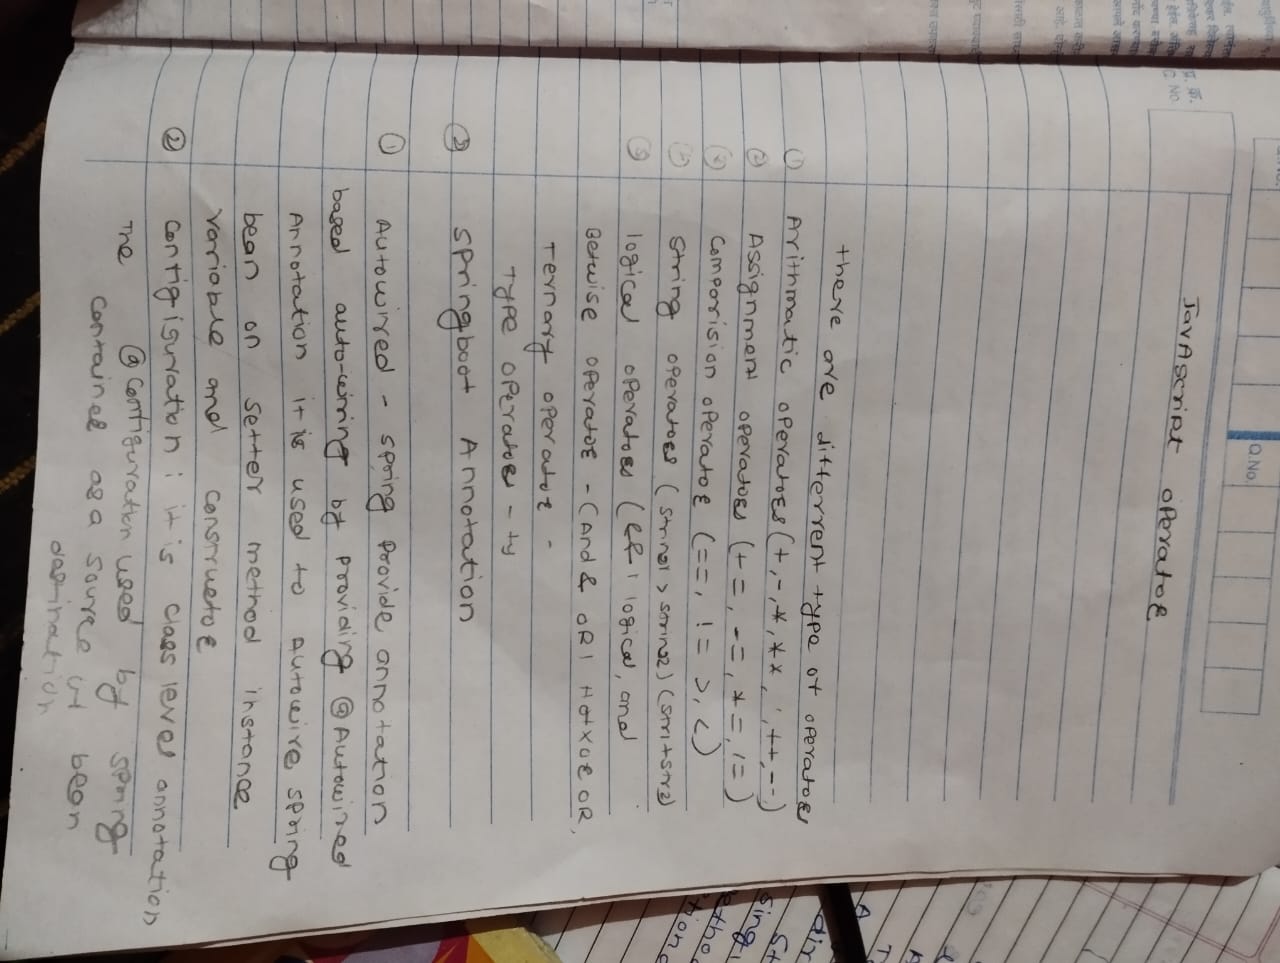 Q.No.
प्र. क्र.
Q. No.
JavAscript operator
there are differrent type of operators
① Arithmatic operators (+, -, *, **, ', ++, --)
② Assignment operators (+=, -=, *=, /=)
③ Comparision operator (==, != >, <)
④ String operators (string1 > string2) (str1+str2)
⑤ logical operators (&&, logical, and
Betwise operator - (And & OR | Not XOR OR,
Ternary operator -
Type operators - ty
② springboot Annotation
① Autowired - spring provide annotation
based auto-wiring by providing @Autowired
Annotation it is used to Autowire spring
bean on setter method instance
variable and constructor
② Configisuration : it is class level annotation
The @Configuration used by spring
container as a source of bean